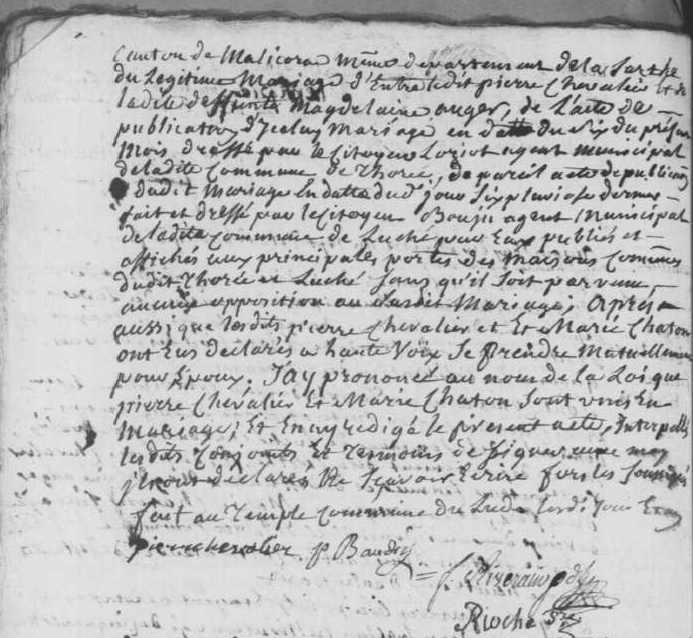 Canton de Malicorne même departement de la Sarthe
du Legitime Mariage d'Entre ledit pierre Chevalier Et de
ladite deffunte Magdelaine auger, de l'acte de
publication d'Iceluy Mariage en datte du six du présent
Mois dressé par le Citoyen Loriot agent municipal
de ladite Commune de Thorée, de pareil acte de publication
dudit Mariage En datte du jour six pluviose dernier
fait et dressé par le Citoyen agent Municipal
de ladite Commune de Luché pour Eux publiés et
affichés aux principales portes des maisons Communes
dudit Thorée et Luché sans qu'il soit parvenu
aucune opposition au susdit Mariage; après
aussi que lesdits pierre Chevalier et Et Marie Chaton
ont Eus declarés a haute Voix Se prendre Mutuellement
pour Epoux. J'ay prononcé au nom de la Loi que
pierre Chevalier Et Marie Chaton sont unis En
Mariage; Et En ay redigé le présent acte, Interpellé
lesdits Conjoints Et Temoins de signer avec moy
declarés Ne Sçavoir Ecrire fors les soussignés
fait au Temple commune du Lude lesdits jour Et an
pierre chevalier p. Baudry
Rioche